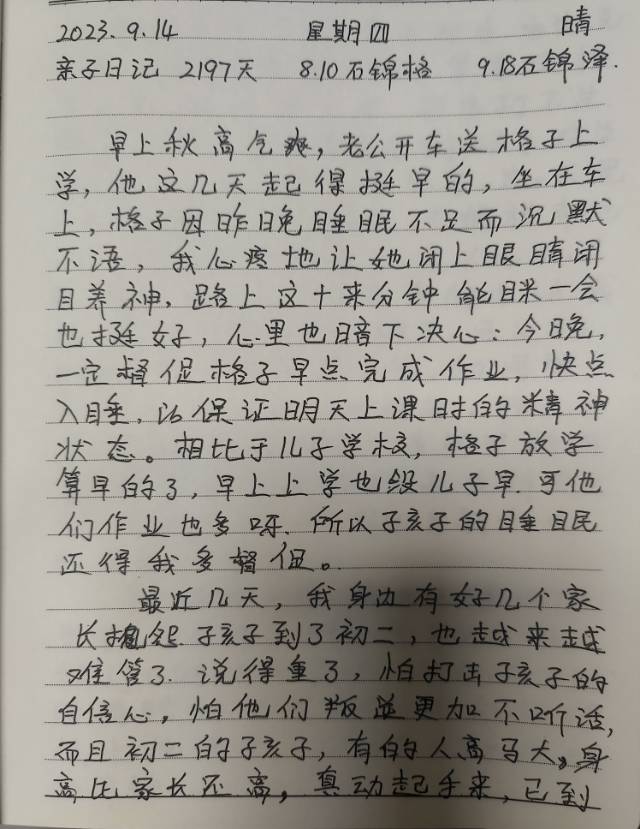 2023.9.14 星期四 晴
亲子日记 2197天 8.10石锦格 9.18石锦泽.
早上秋高气爽,老公开车送格子上
学,他这几天起得挺早的,坐在车
上,格子因昨晚睡眠不足而沉默
不语,我心疼地让她闭上眼睛闭
目养神,路上这十来分钟能眯一会
也挺好,心里也暗下决心:今晚,
一定督促格子早点完成作业,快点
入睡,以保证明天上课时的精神
状态。相比于儿子学校,格子放学
算早的了,早上上学也没儿子早.可他
们作业也多呀.所以孩子的睡眠
还得我多督促。
最近几天,我身边有好几个家
长抱怨孩子到了初二,也越来越
难管了.说得重了,怕打击孩子的
自信心,怕他们叛逆更加不听话,
而且初二的孩子,有的人高马大,身
高比家长还高,真动起手来,已到